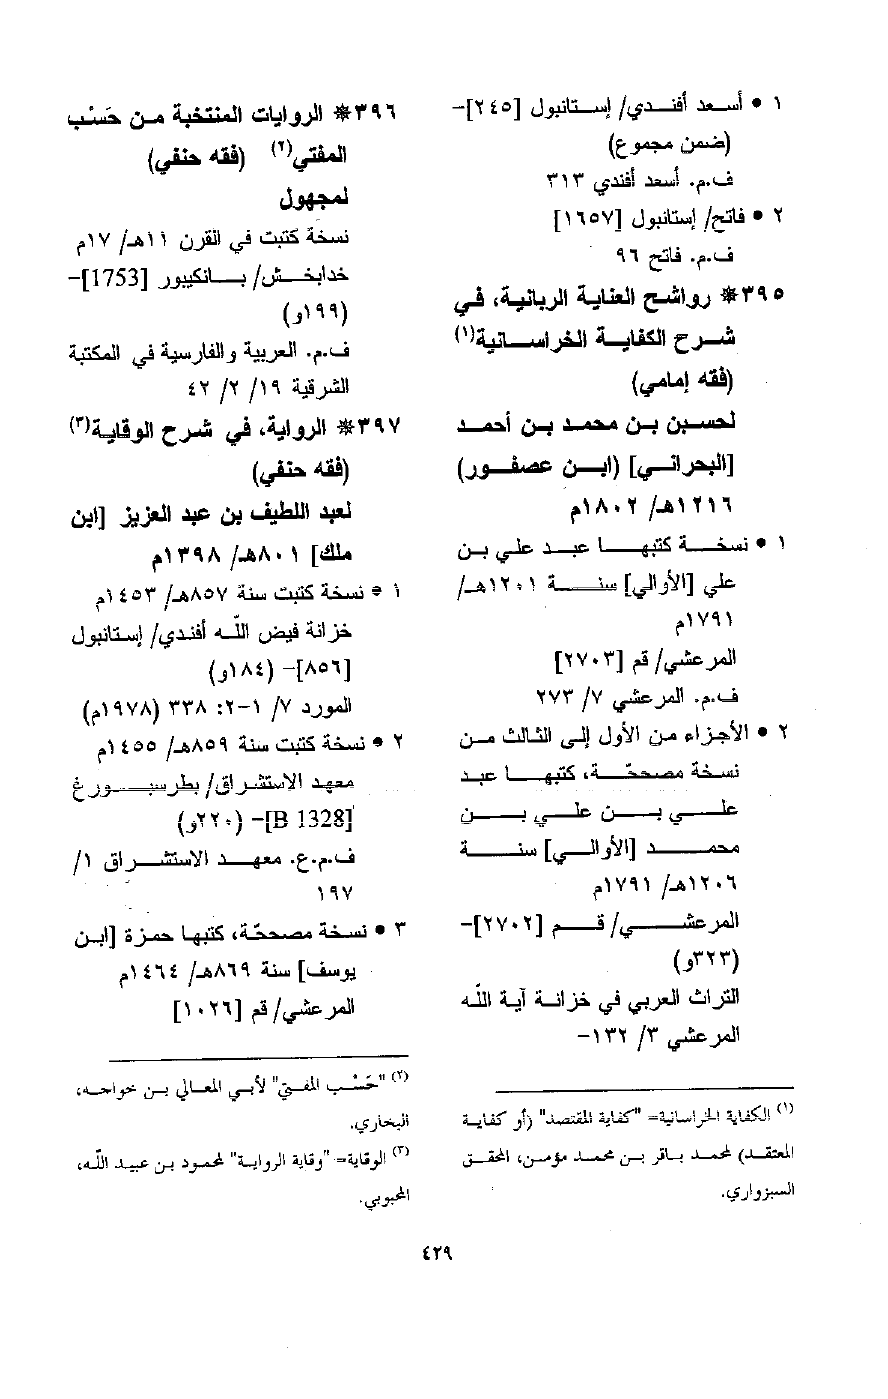 ١ • أسعد أفندي/ إستانبول [٢٤٥]-
(ضمن مجموع)
ف.م. أسعد أفندي ٣١٣
٢ • فاتح/ إستانبول [١٦٥٧]
ف.م. فاتح ٩٦
٣٩٥* رواشح العناية الربانية، في
شرح الكفاية الخراسانية(١)
(فقه إمامي)
لحسين بن محمد بن أحمد
[البحراني] (ابن عصفور)
١٢١٦هـ/ ١٨٠٢م
١ • نسخة كتبها عبد علي بن
علي [الأوالي] سنة ١٢٠١هـ/
١٧٩١م
المرعشي/ قم [٢٧٠٣]
ف.م. المرعشي ٧/ ٢٧٣
٢ • الأجزاء من الأول إلى الثالث من
نسخة مصححّة، كتبها عبد
علي بن علي بن
محمد [الأوالي] سنة
١٢٠٦هـ/ ١٧٩١م
المرعشي/ قم [٢٧٠٢]-
(٣٢٣و)
التراث العربي في خزانة آية اللّه
المرعشي ٣/ ١٣٢-
(١) الكفاية الخراسانية= "كفاية المقتصد" (أو كفاية
المعتقد) لمحمد باقر بن محمد مؤمن، المحقق
السبزواري.
٣٩٦* الروايات المنتخبة من حَسْب
المفتي(٢) (فقه حنفي)
لمجهول
نسخة كتبت في القرن ١١هـ/ ١٧م
خدابخش/ بانكيبور [1753]-
(١٩٩و)
ف.م. العربية والفارسية في المكتبة
الشرقية ١٩/ ٢/ ٤٢
٣٩٧* الرواية، في شرح الوقاية(٣)
(فقه حنفي)
لعبد اللطيف بن عبد العزيز [ابن
ملك] ٨٠١هـ/ ١٣٩٨م
١ • نسخة كتبت سنة ٨٥٧هـ/ ١٤٥٣م
خزانة فيض اللّه أفندي/ إستانبول
[٨٥٦]- (١٨٤و)
المورد ٧/ ١-٢: ٣٣٨ (١٩٧٨م)
٢ • نسخة كتبت سنة ٨٥٩هـ/ ١٤٥٥م
معهد الاستشراق/ بطرسبورغ
[B 1328]- (٢٢٠و)
ف.م.ع. معهد الاستشراق ١/
١٩٧
٣ • نسخة مصححّة، كتبها حمزة [ابن
يوسف] سنة ٨٦٩هـ/ ١٤٦٤م
المرعشي/ قم [١٠٢٦]
(٢) "حَسْب المفتي" لأبي المعالي بن خواجه،
البخاري.
(٣) الوقاية= "وقاية الرواية" لمحمود بن عبيد اللّه،
المحبوبي.
٤٢٩